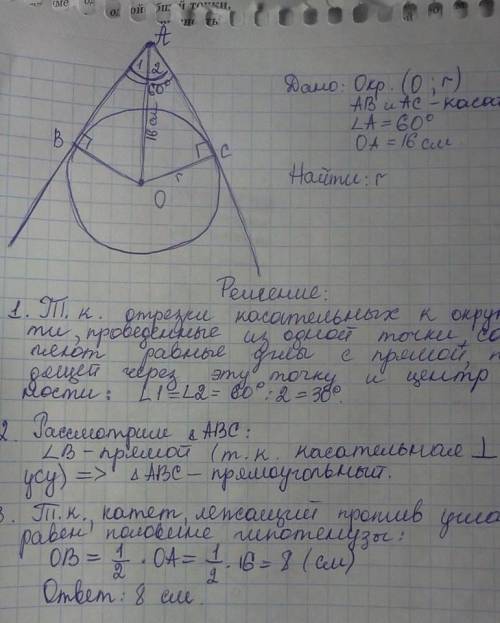 одной
точки,
A
1 2
60°
16 см
B
C
r
O
Дано: Окр. (O; r)
AB и AC – каса
∠A = 60°
OA = 16 см
Найти: r
Решение:
1. Т.к. отрезки касательных к окру
ти, проведенные из одной точки, со
равные углы с прямой, п
дящей через эту точку и центр
ности: ∠1 = ∠2 = 60° : 2 = 30°.
2. Рассмотрим △ABC:
∠B – прямой (т.к. касательная ⊥
усу) => △ABC – прямоугольный.
3. Т.к. катет, лежащий против угла
равен половине гипотенузы:
OB = 1/2 · OA = 1/2 · 16 = 8 (см)
Ответ: 8 см.